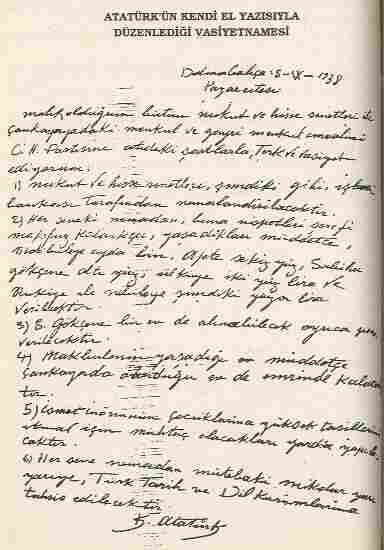 ATATÜRK'ÜN KENDİ EL YAZISIYLA
DÜZENLEDİĞİ VASİYETNAMESİ
Dolmabahçe: 5-IX-1938
Pazartesi
Malik olduğum bütün nukut ve hisse senetleri ile
Çankayadaki menkul ve gayri menkul emvalimi
C. H. Partisine atideki şartlarla, terk ve vasiyet
ediyorum:
1) nukut ve hisse senetleri, şimdiki gibi, iş
bankası tarafından nemalandırılacaktır.
2) Her seneki nemadan, bana nispetleri şerefi
mahfuz kaldıkça, yaşadıkları müddetçe,
Makbuleye ayda bin, Afete sekiz yüz, Sabiha
Gökçene altı yüz, ülküye iki yüz lira ve
Rukiye ile Nebileye şimdiki yüzer lira
verilecektir.
3) S. Gökçene bir ev de alınabilecek ayrıca para
verilecektir.
4) Makbulenin yaşadığı müddetçe
Çankayada oturduğu ev de emrinde kalacak
tır.
5) İsmet İnönünün çocuklarına yüksek tahsillerini
ikmal için muhtaç olacakları yardım yapıla
caktır.
6) Her sene nemadan mütebaki miktar yarı
yarıya, Türk Tarih ve Dil Kurumlarına
tahsis edilecektir.
K. Atatürk